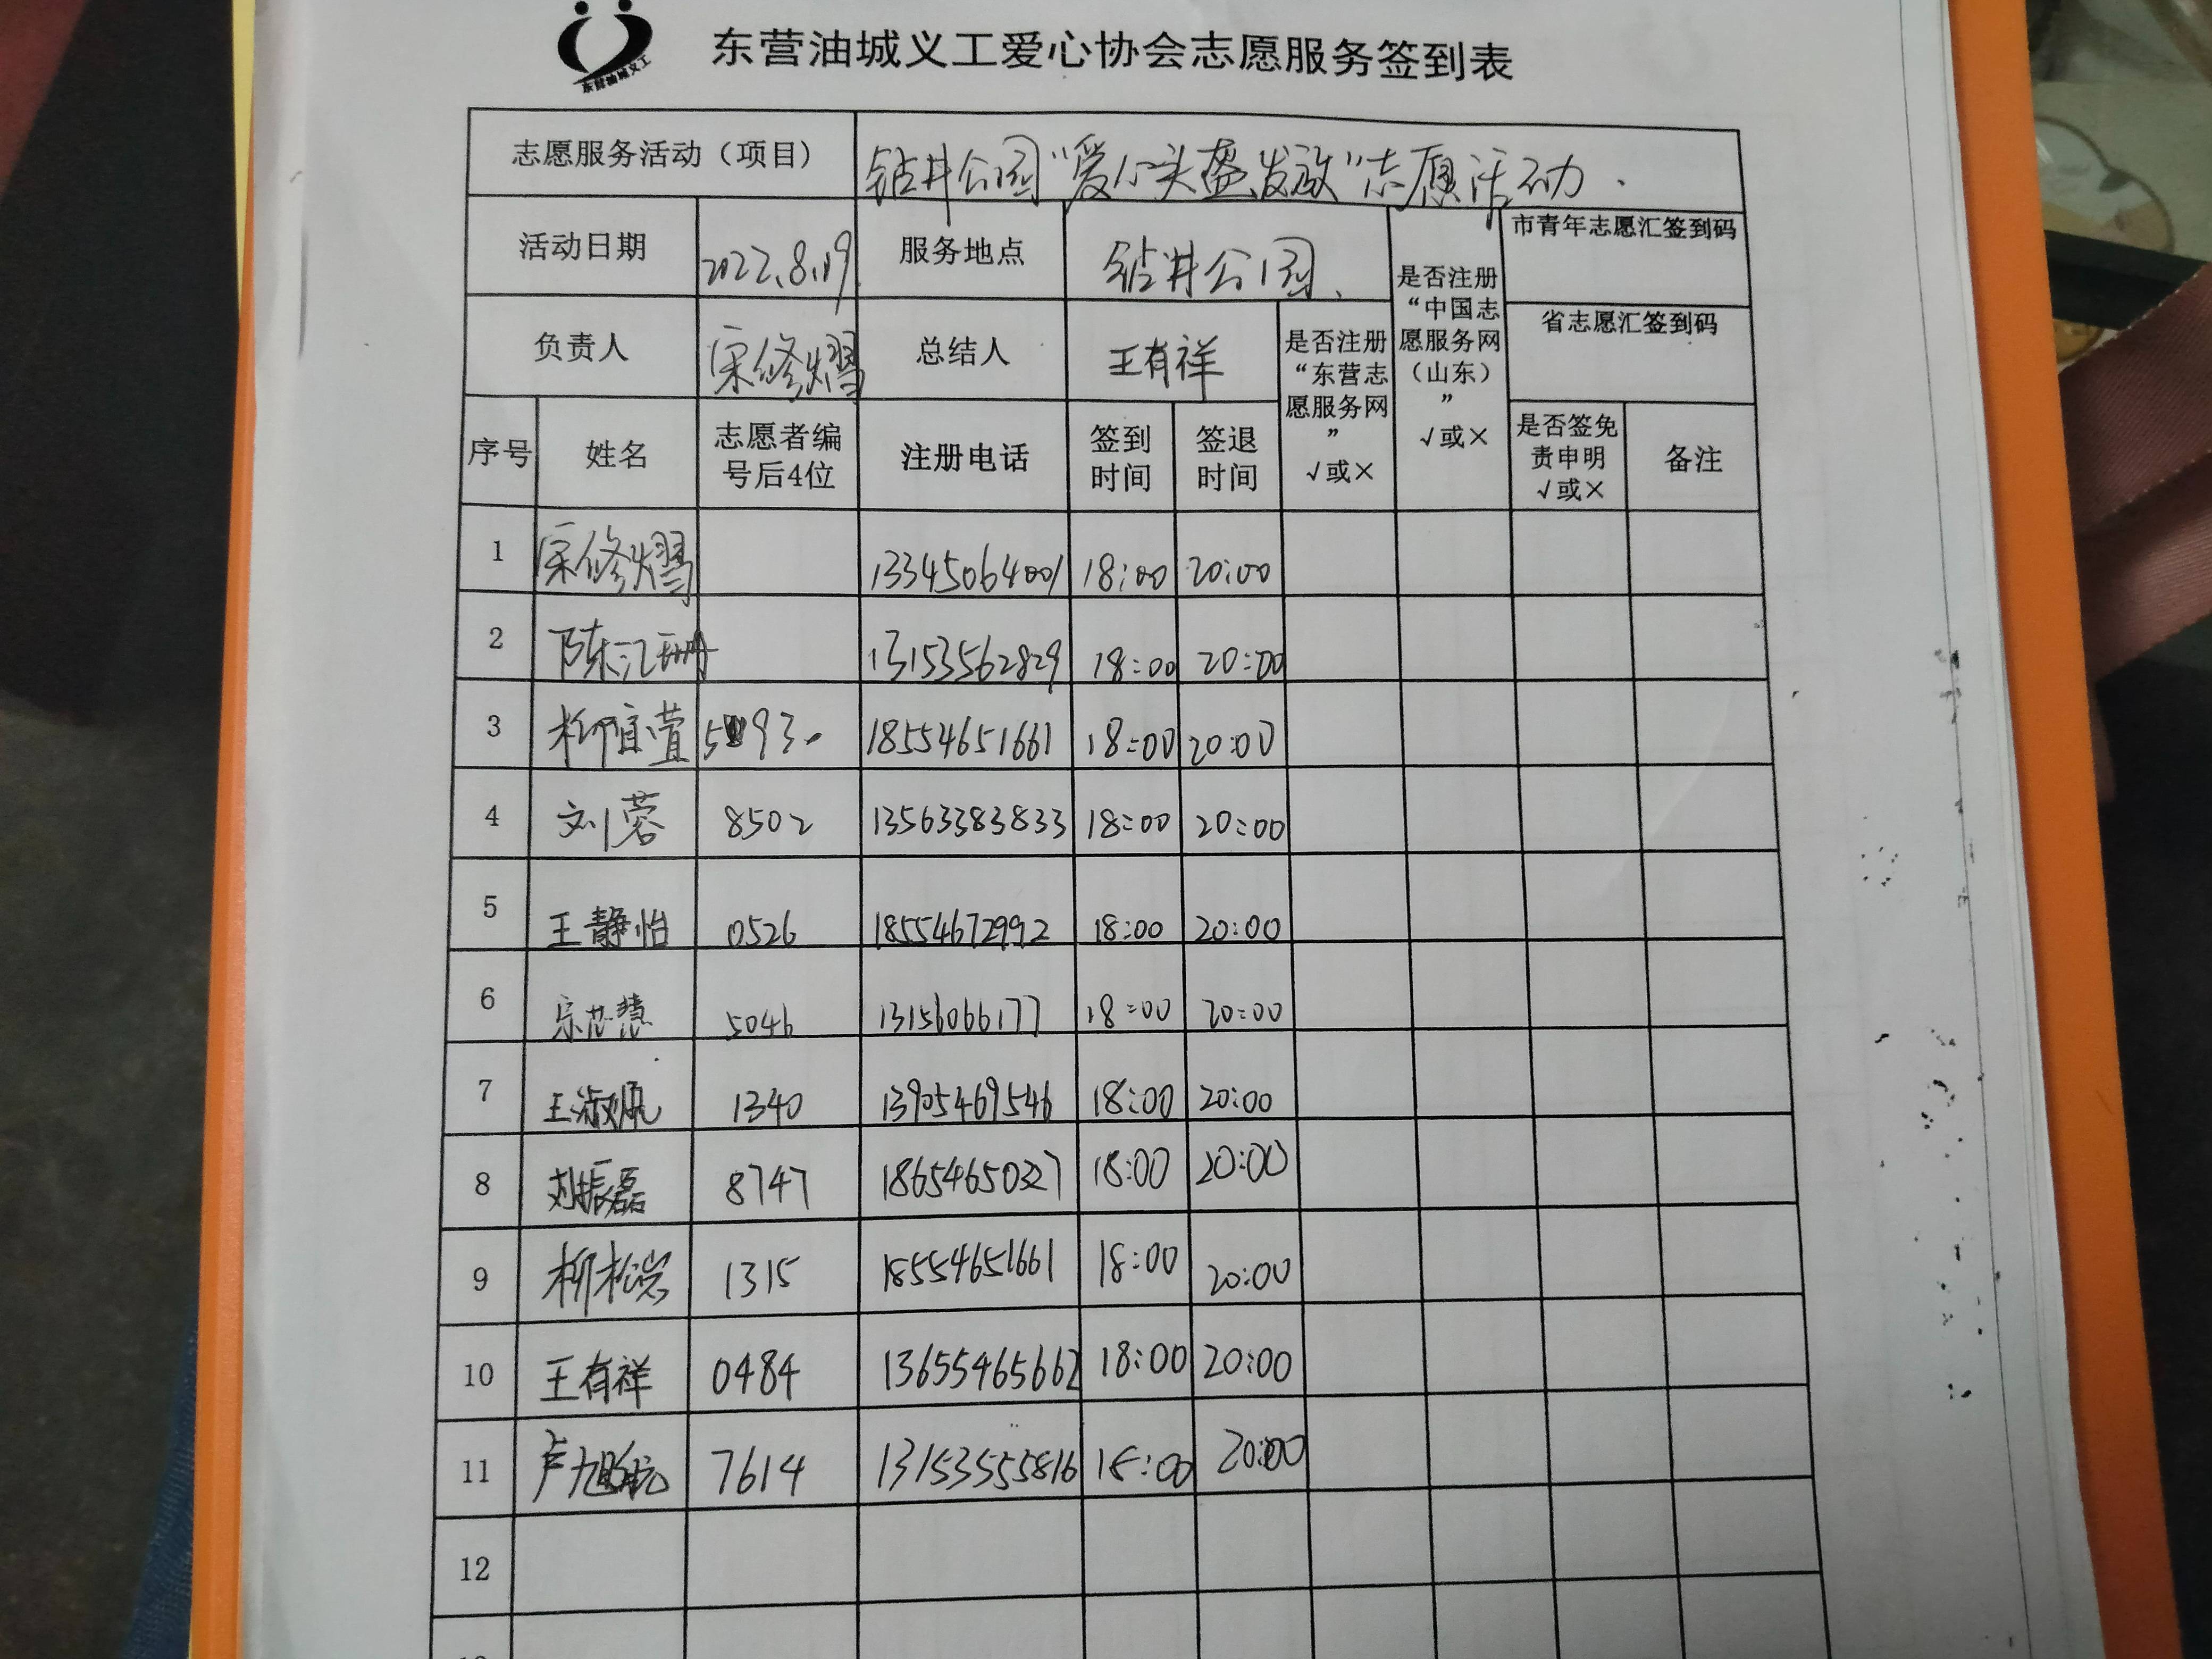 东营油城义工
东营油城义工爱心协会志愿服务签到表
志愿服务活动（项目） 钻井公园“爱心头盔发放”志愿活动.
活动日期 2022.8.19 服务地点 钻井公园、 市青年志愿汇签到码
负责人 宋修熠 总结人 王有祥 省志愿汇签到码
是否注册
“东营志
愿服务网
”
√或×
是否注册
“中国志
愿服务网
（山东）
”
√或×
序号 姓名 志愿者编
号后4位 注册电话 签到
时间 签退
时间 是否签免
责申明
√或× 备注
1 宋修熠 13345064001 18:00 20:00
2 陈汇珊 13153562829 18:00 20:00
3 柳宣萱 18554651661 18:00 20:00
4 刘蓉 8502 13563383833 18:00 20:00
5 王静怡 0526 18554672992 18:00 20:00
6 5046 13156066177 18:00 20:00
7 1340 13905469546 18:00 20:00
8 刘振磊 8747 18654650327 18:00 20:00
9 柳松岩 1315 18554651661 18:00 20:00
10 王有祥 0484 13655465662 18:00 20:00
11 7614 13153555816 18:00 20:00
12